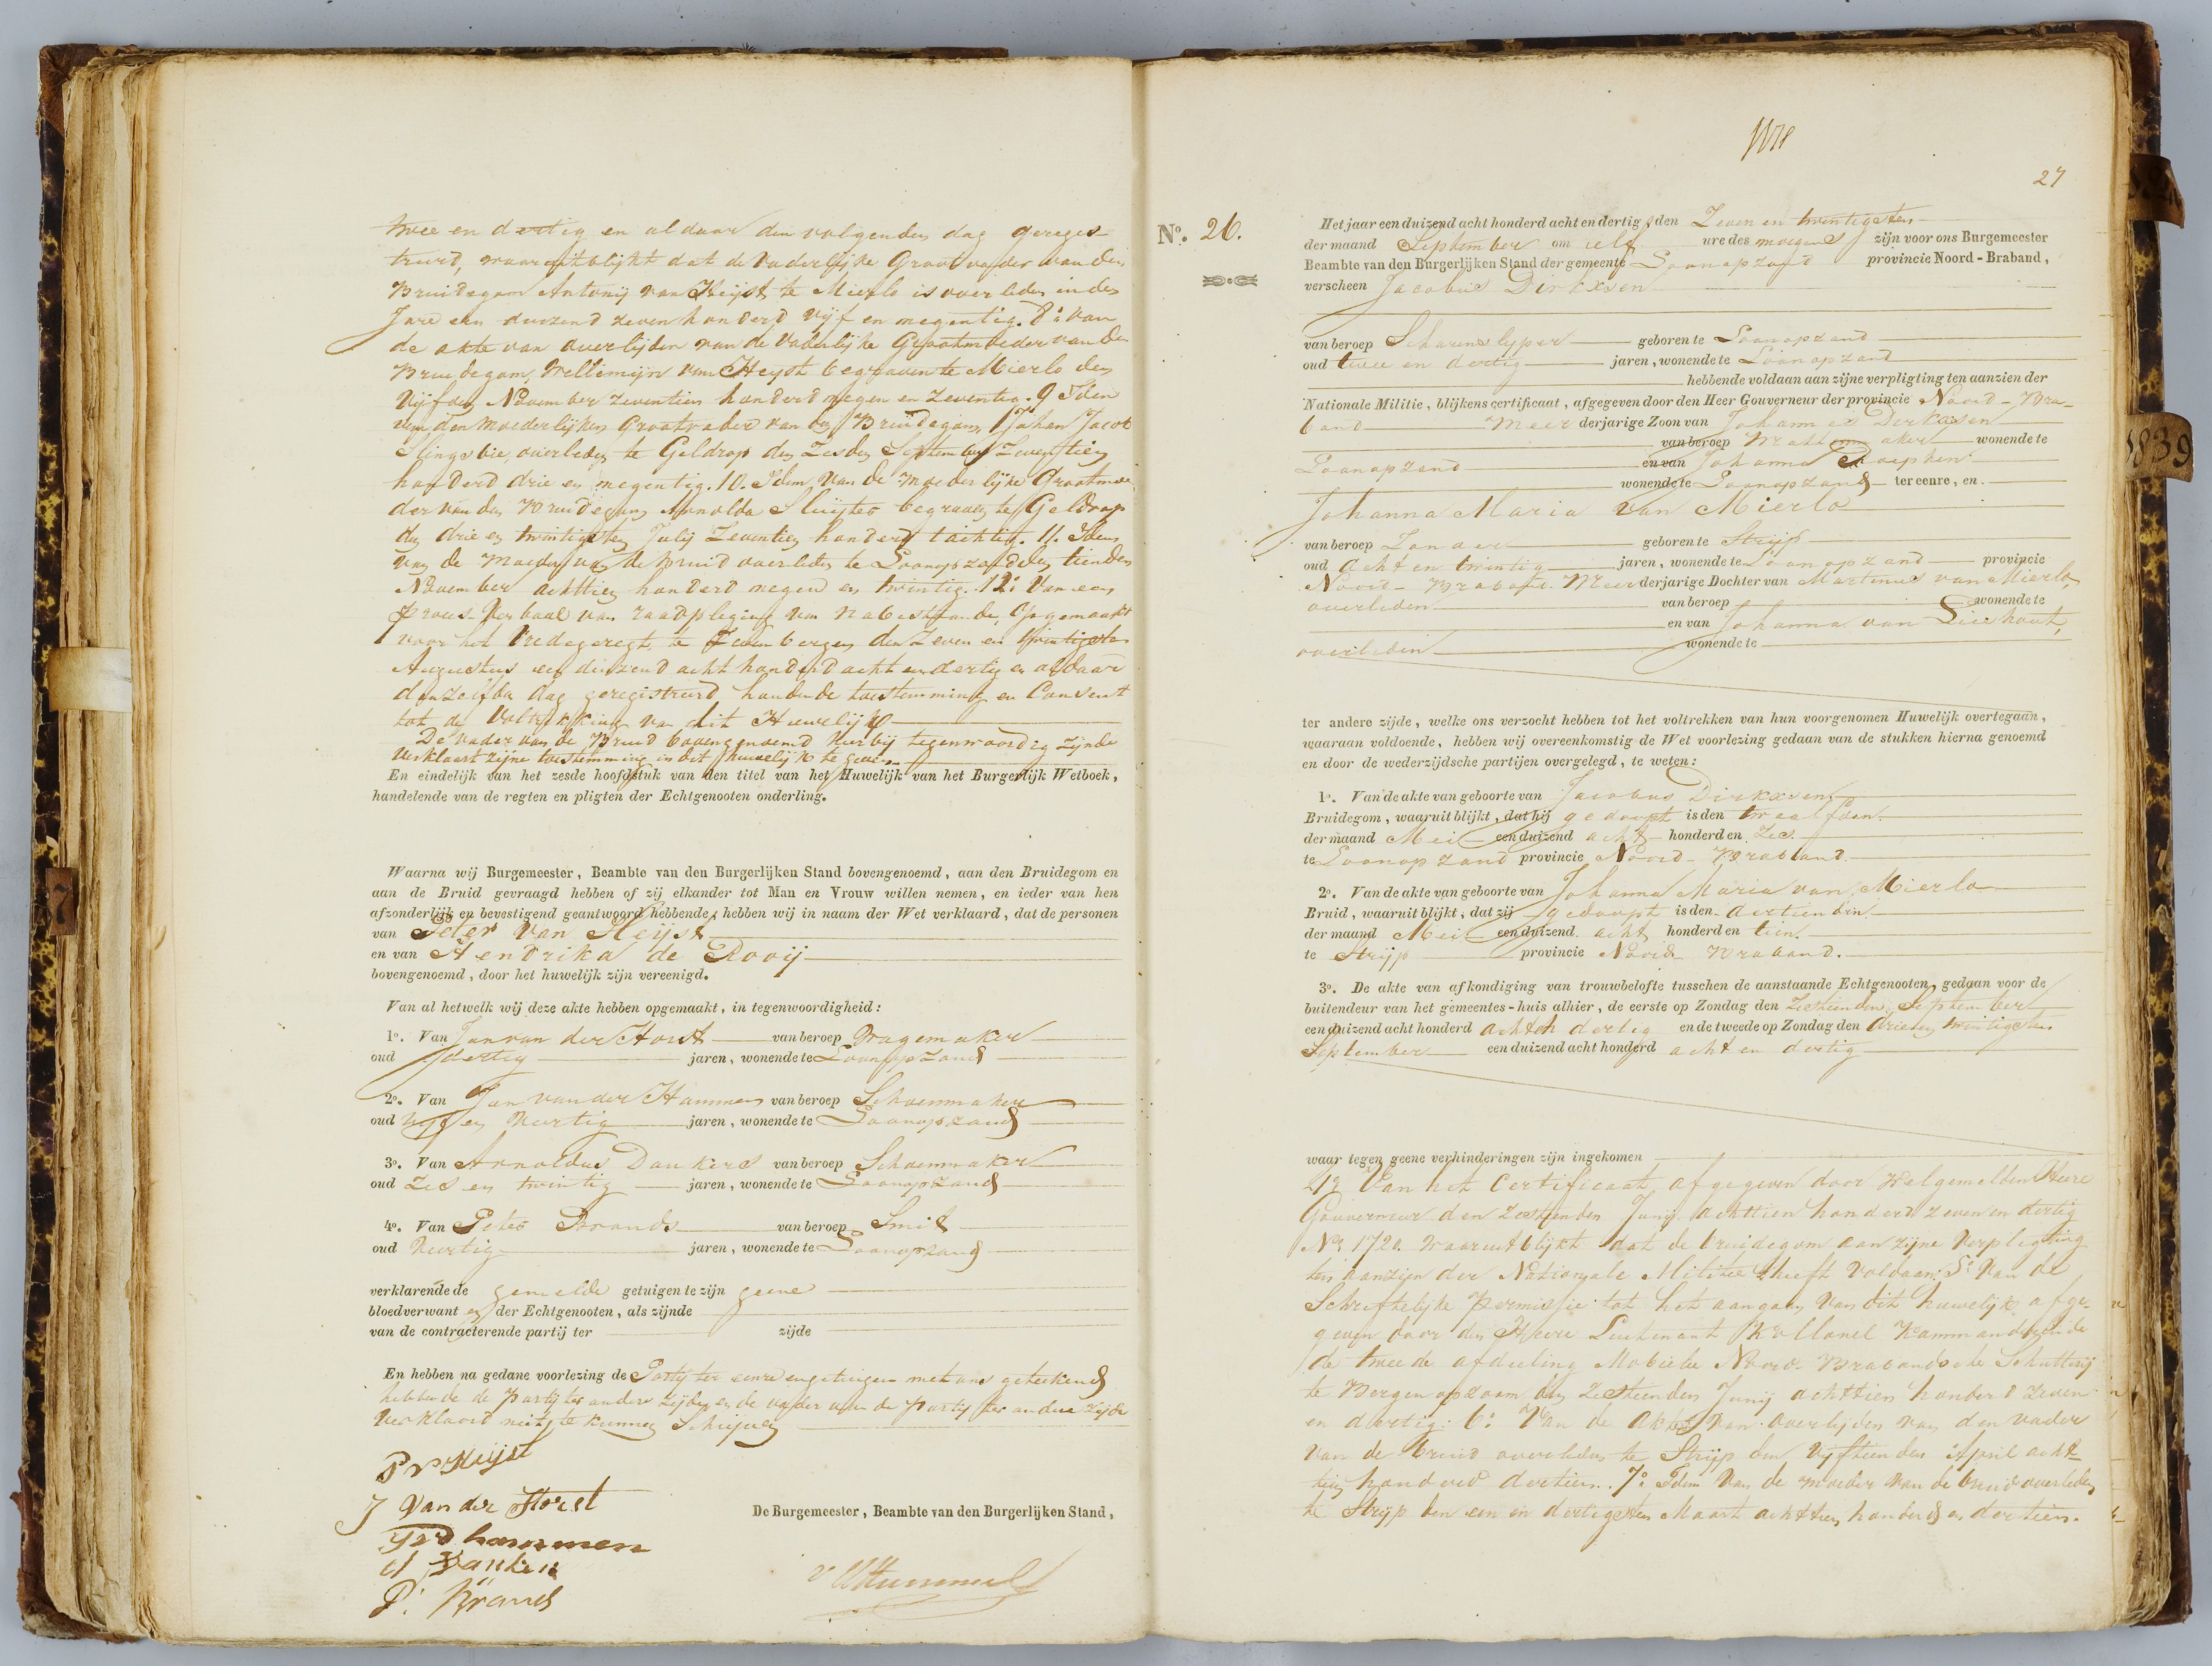 twee en dertig en aldaar den volgenden dag gereges-
treerd, waaruit blijkt dat de Vaderlijke Grootvader van den
Bruidegom Antonij van Heijst te Mierlo is overleden in den
Jare een duizend zeven honderd vijf en negentig. 8: van
de akte van overlijden van de Vaderlijke Grootmoeder van den
Bruidegom, Willemijn van Heyst begraven te Mierlo den
Vijfden November zeventien honderd negen en zeventig. 9 Idem
van den moederlijken Grootvader van den Bruidegom, Johan Jacob
Slingsbie, overleden te Geldrop den Zesden September Zeventien
honderd drie en negentig. 10. Idem van de moederlijke Grootmoe-
der van den Bruidegom Arnolda Sluijters begraven te Geldrop
den drie en twintigsten Julij Zeventien honderd tachtig. 11. Idem
van de Moeder van de Bruid overleden te Loonopzand den tienden
November achttien honderd negen en twintig. 12: Van een
proces-Verbaal van raadpleging van nabestaande, opgemaakt
voor het Vredegeregt te Zevenbergen den Zeven en twintigsten
Augustus een duizend acht honderd acht en dertig en aldaar
denzelfden dag geregistreerd houdende toestemming en Consent
tot de Voltrekking van dit Huwelijk
De vader van de Bruid bovengenoemd hierbij tegenwoordig zijnde
Verklaart zijne toestemming in dit huwelijk te geven
En eindelijk van het zesde hoofdstuk van den titel van het Huwelijk van het Burgerlijk Wetboek,
handelende van de regten en pligten der Echtgenooten onderling.
Waarna wij Burgemeester, Beambte van den Burgerlijken Stand bovengenoemd, aan den Bruidegom en
aan de Bruid gevraagd hebben of zij elkander tot Man en Vrouw willen nemen, en ieder van hen
afzonderlijk en bevestigend geantwoord hebbende, hebben wij in naam der Wet verklaard, dat de personen
van Peter van Heijst
en van Hendrika de Rooij
bovengenoemd, door het huwelijk zijn vereenigd.
Van al hetwelk wij deze akte hebben opgemaakt, in tegenwoordigheid:
1o. Van Jan van der Horst van beroep Wagemaker
oud dertig jaren, wonende te Loonopzand
2o. Van Jan van der Hammen van beroep Schoenmaker
oud Vijf en Veertig jaren, wonende te Loonopzand
3o. Van Arnoldus Dankers van beroep Schoenmaker
oud Zes en twintig jaren, wonende te Loonopzand
4o. Van Peter Brands van beroep Smit
oud Veertig jaren, wonende te Loonopzand
verklarende de gemelde getuigen te zijn geene
bloedverwant en der Echtgenooten, als zijnde
van de contracterende partij ter zijde
En hebben na gedane voorlezing de Partij ter eenre en getuigen met ons geteekend
hebbende de partij ter andere zijde en de vader van de partij ter andere zijde
Verklaard niet te kunnen Schrijven
P v Heijst
J van der Horst
J v d hammen
A Danken
P. Brands
De Burgemeester, Beambte van den Burgerlijken Stand,
27
No. 26.
Het jaar een duizend acht honderd acht en dertig, den Zeven en twintigsten
der maand September om elf ure des morgens zijn voor ons Burgemeester
Beambte van den Burgerlijken Stand der gemeente Loonopzand provincie Noord-Braband,
verscheen Jacobus Dirkxsen
van beroep Scharenslyper geboren te Loonopzand
oud twee en dertig jaren, wonende te Loonopzand
hebbende voldaan aan zijne verpligting ten aanzien der
Nationale Militie, blijkens certificaat, afgegeven door den Heer Gouverneur der provincie Noord-Bra-
band Meer derjarige Zoon van Johannes Dirkxsen
van beroep wonende te
Loonopzand en van Johanna
wonende te Loonopzand ter eenre, en
Johanna Maria van Mierlo
van beroep Zonder geboren te Strijp
oud acht en twintig jaren, wonende te Loonopzand provincie
Noord-Braband. Meer derjarige Dochter van Martinus van Mierlo,
overleden van beroep wonende te
en van Johanna van Lieshout,
overleden wonende te
ter andere zijde, welke ons verzocht hebben tot het voltrekken van hun voorgenomen Huwelijk overtegaan,
waaraan voldoende, hebben wij overeenkomstig de Wet voorlezing gedaan van de stukken hierna genoemd
en door de wederzijdsche partijen overgelegd, te weten:
1o. Van de akte van geboorte van Jacobus Dirkxsen
Bruidegom, waaruit blijkt, dat hij gedoopt is den twaalfden
der maand Mei een duizend acht honderd en Zes
te Loonopzand provincie Noord-Braband.
2o. Van de akte van geboorte van Johanna Maria van Mierlo
Bruid, waaruit blijkt, dat zij gedoopt is den dertienden
der maand Mei een duizend acht honderd en tien.
te Strijp provincie Noord-Braband.
3o. De akte van afkondiging van trouwbelofte tusschen de aanstaande Echtgenooten, gedaan voor de
buitendeur van het gemeentes-huis alhier, de eerste op Zondag den Zestienden September
een duizend acht honderd acht en dertig en de tweede op Zondag den drie en twintigsten
September een duizend acht honderd acht en dertig
waar tegen geene verhinderingen zijn ingekomen
4o Van het Certificaat afgegeven door Welgemelden Heere
Gouverneur den Zestienden Junij achttien honderd zeven en dertig
No 1720. waaruit blijkt dat de bruidegom aan zijne Verpligting
ten aanzien der Nationale Militie heeft Voldaan. 5o Van de
Schriftelijke permissie tot het aangaan van dit huwelijk afge-
geven door den Heere Luitenant Kollonel Kommanderende
de tweede afdeeling Mobiele Noord Brabandsche Schutterij
te Bergen opzoom den Zestienden Junij achttien honderd zeven
en dertig: 6: Van de Akte van overlijden van den vader
van de bruid overleden te Strijp den vijftienden April acht-
tien honderd dertien. 7o Idem Van de moeder van de bruid overleden
te Strijp den een en dertigsten Maart achttien honderd en dertien.
1839